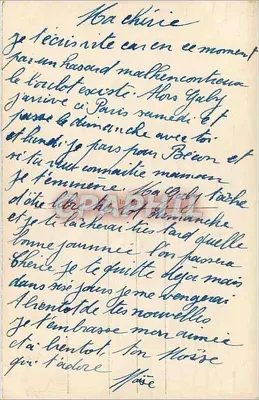 Ma chérie
je t'écris vite car en ce moment
par un hasard malhencontreux
le boulot existe. Alors Gaby
j'arrive à Paris samedi. Et
passe le dimanche avec toi
et lundi je pars pour Bécon et
si tu veux connaitre maman
je t'emmène. Ma Gaby tache
d'être libre Dimanche
et je te lacherai très tard quelle
bonne journnée l'on passera
Chérie je te quitte déja mais
dans six jours je me vengerai
A bientot de tes nouvelles
je t'embrasse mon aimée
et à bientot, ton Moïse
qui t'adore
Moïse